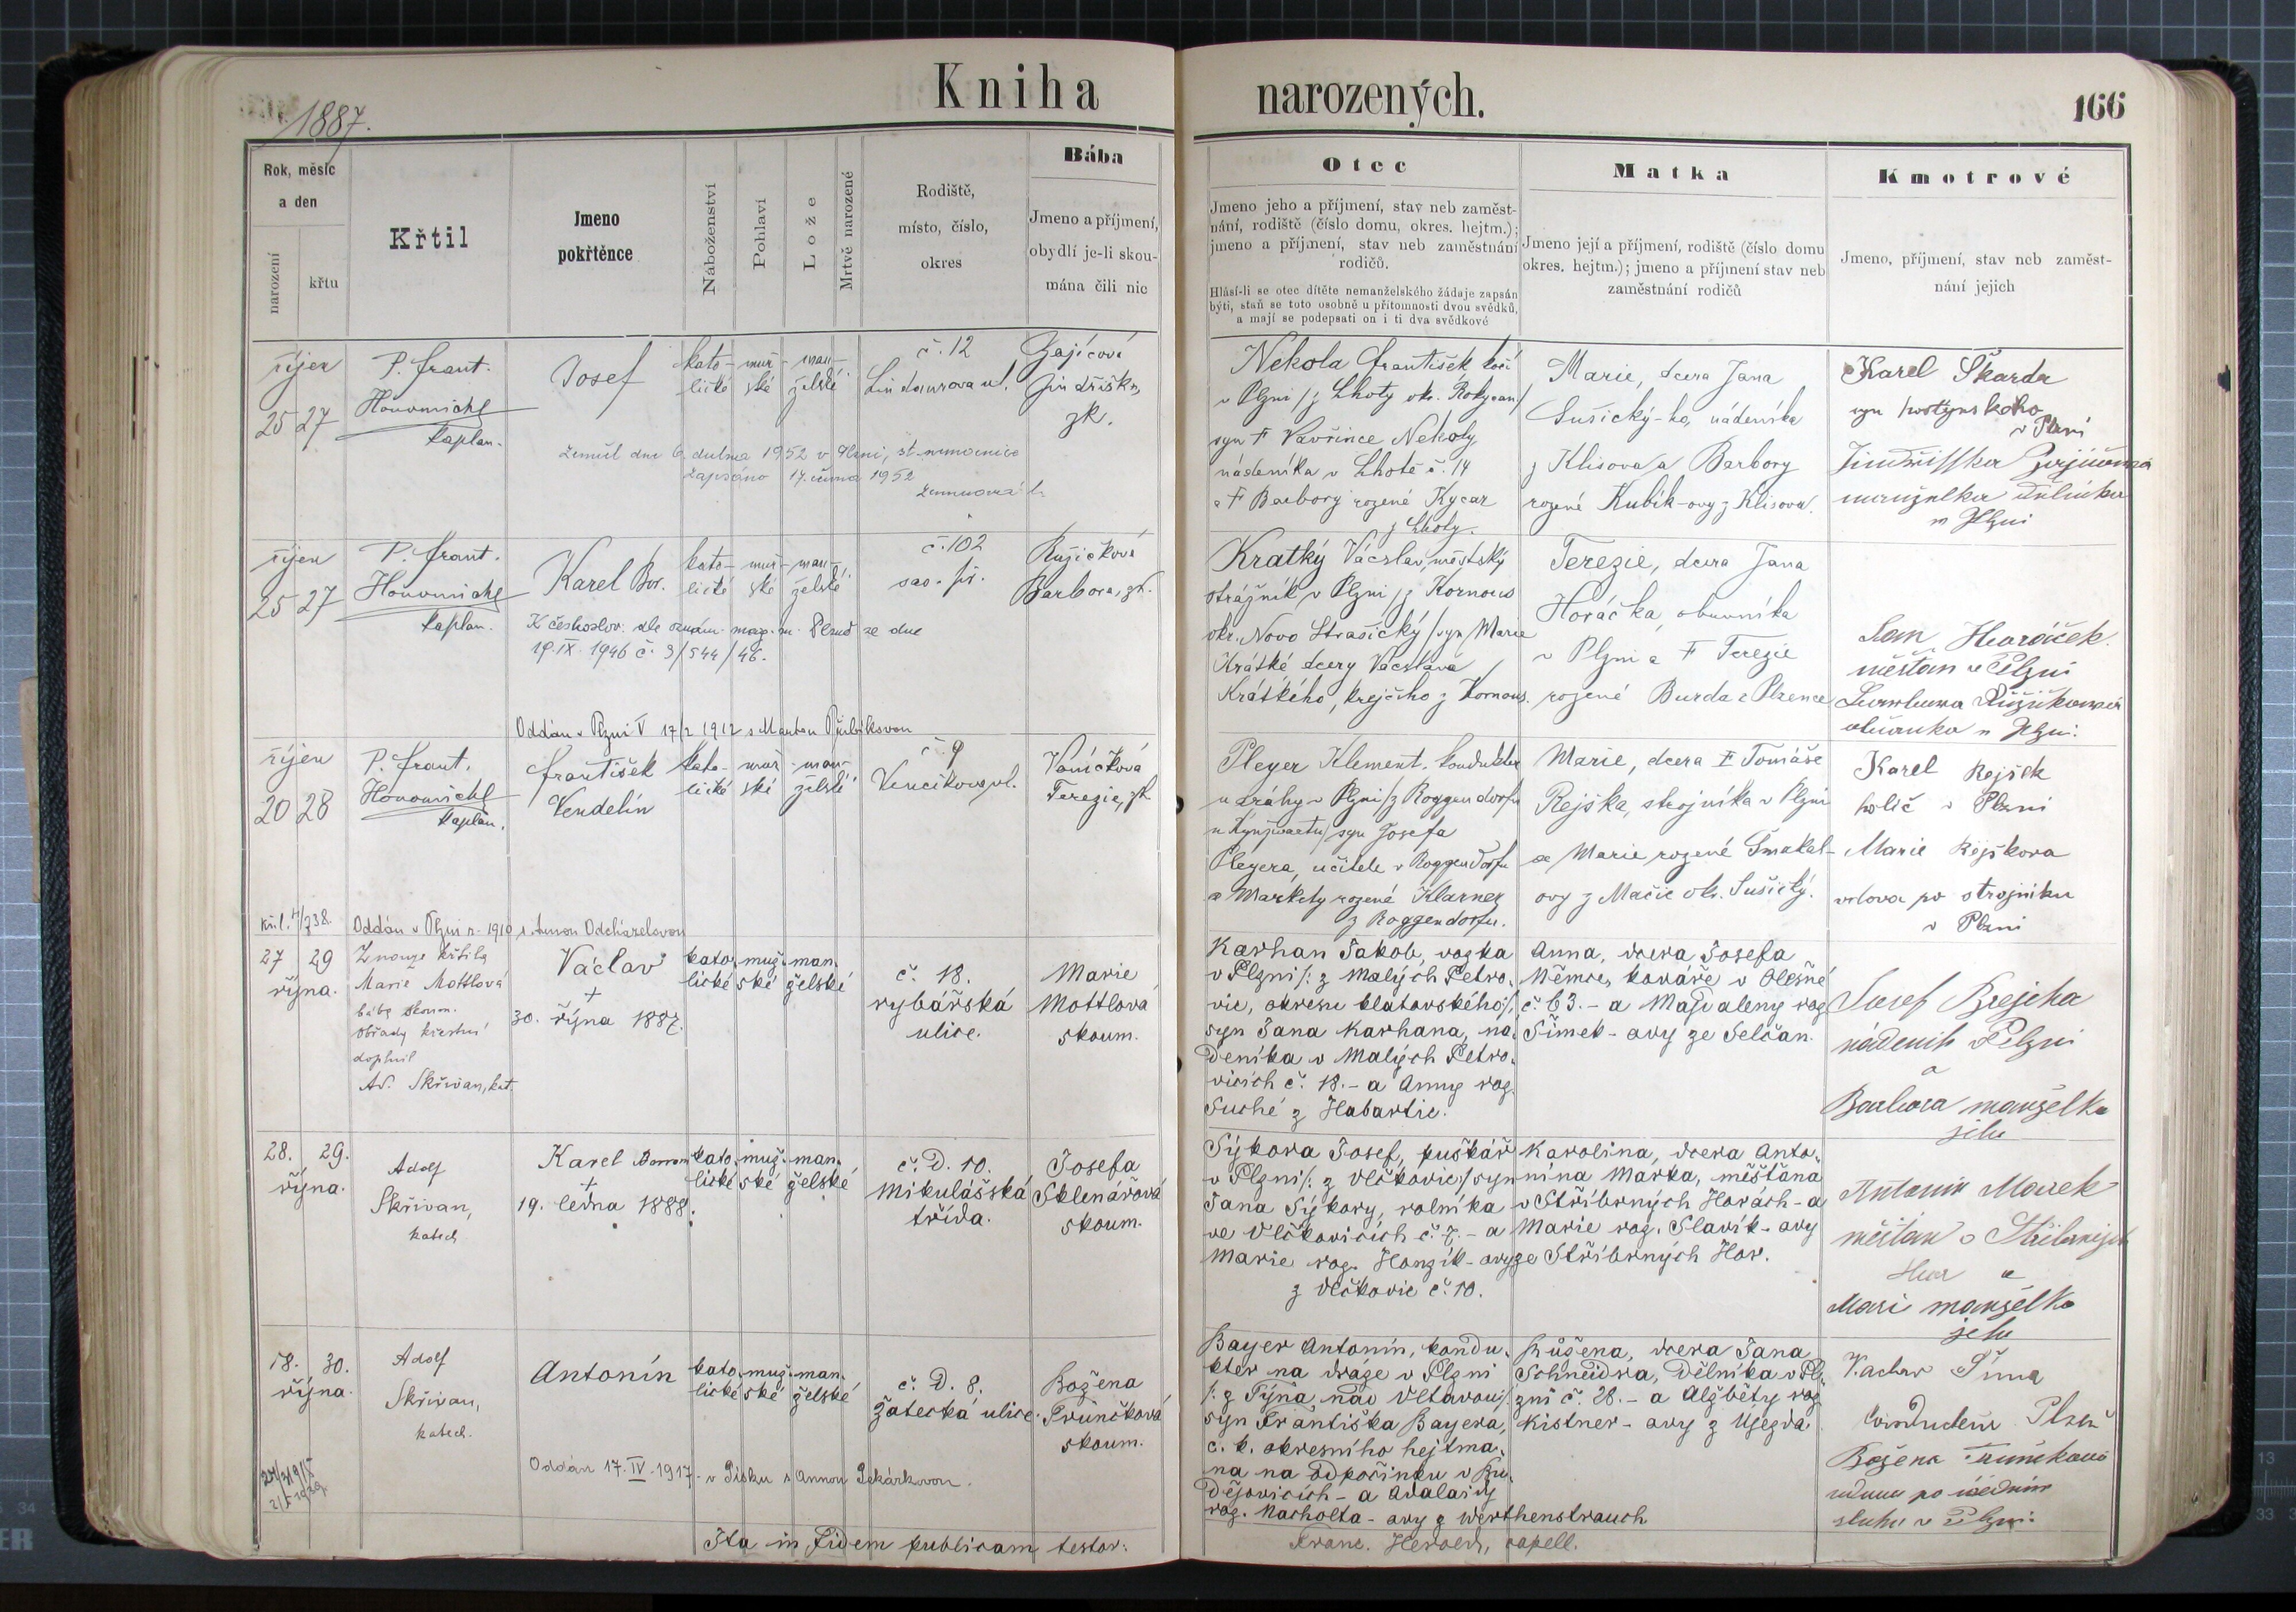 Kniha narozených.
166
1887.
Rok, měsíc
a den
narození
křtu
Křtil
Jmeno
pokřtěnce
Náboženství
Pohlaví
Lože
Mrtvě narozené
Rodiště,
místo, číslo,
okres
Bába
Jmeno a příjmení,
obydlí je-li skou-
mána čili nic
Otec
Jmeno jeho a příjmení, stav neb zaměst-
nání, rodiště (číslo domu, okres. hejtm.);
jmeno a příjmení, stav neb zaměstnání
rodičů.
Hlásí-li se otec dítěte nemanželského žádaje zapsán
býti, staň se toto osobně u přítomnosti dvou svědků,
a mají se podepsati on i ti dva svědkové
Matka
Jmeno její a příjmení, rodiště (číslo domu
okres. hejtm.); jmeno a příjmení stav neb
zaměstnání rodičů
Kmotrové
Jmeno, příjmení, stav neb zaměst-
nání jejich
říjen
25 27
P. Frant.
Honomichl
kaplan.
Josef
kato- muž- man-
lické ské želské
č. 12
ul.
Zajícová
zk.
Zemřel dne 6. dubna 1952 v Plzni, st. nemocnice
Zapsáno 17. června 1952
Nekola František kočí
v Plzni /z Lhoty okr. Rokycan/
syn † Vavřince Nekoly
nádeníka v Lhotě č. 14
a † Barbory rozené Kycar
z Lhoty.
Marie, dcera Jana
Sušický-ho, nádeníka
z Klisova a Barbory
rozené Kubík-ovy z Klisova.
Karel Škarda
syn
v Plzni
manželka
v Plzni
říjen
25 27
P. Frant.
Honomichl
kaplan.
Karel Bor.
kato- muž- man-
lické ské želské
č. 102
sas. př.
Růžičková
Barbora, zk.
K českoslov. dle oznám. mag. m. Plzně ze dne
19. IX. 1946 č. 9/544/46.
Oddán v Plzni V 17/2 1912 s Martou Přibíkovou
Kratký Václav, městský
strážník v Plzni /z Kornous
okr. Novo Strašický/ syn Marie
Krátké dcery Václava
Krátkého, krejčího z Kornous.
Terezie, dcera Jana
Horáčka, obuvníka
v Plzni a † Terezie
rozené Burda z Plzence
Jan Horáček
měšťan v Plzni
v Plzni.
říjen
20 28
P. Frant.
Honomichl
kaplan.
František
Vendelín
kato- muž- man-
lické ské želské
č. 9
ul.
Vaníčková
Terezie, zk
Oddán v Plzni r. 1910 s Annou Odcházelovou
Pleyer Klement, konduktér
u dráhy v Plzni /z Roggendorfu
u Kynžvartu/ syn Josefa
Pleyera, učitele v Roggendorfu
a Markety rozené Klarner
z Roggendorfu.
Marie, dcera † Tomáše
Rejška, strojníka v Plzni
a Marie rozené Smakal-
ovy z Mačic okr. Sušický.
Karel Rejšek
holič v Plzni
Marie Rejškova
vdova po strojníku
v Plzni
27 29
října.
Z nouze křtila
Marie Mottlová
bába skoum.
obřady křestní
doplnil
Ad. Skřivan, kat.
Václav
+
30. října 1887.
kato. muž. man.
lické ské želské
č. 18.
rybářská
ulice.
Marie
Mottlová
skoum.
Karhan Jakob, vozka
v Plzni /: z Malých Petro-
vic, okresu klatovského:/,
syn Jana Karhana, ná-
deníka v Malých Petro-
vicích č. 18. - a Anny roz.
Suché z Habartic.
Anna, dcera Josefa
Němce, kováře v Olešné
č. 63. - a Magdaleny roz.
Šimek - ovy ze Selčan.
Josef Brejcha
nádeník v Plzni
a
Barbora manželka
jeho
28. 29.
října.
Adolf
Skřivan,
katech.
Karel Borrom
+
19. ledna 1888.
kato. muž. man.
lické ské želské
č. d. 10.
Mikulášská
třída.
Josefa
Sklenářová
skoum.
Sýkora Josef, puškář
v Plzni /: z Vlčkovic:/ syn
Jana Sýkory, rolníka
ve Vlčkovicích č. 7. - a
Marie roz. Honzík - ovy
z Vlčkovic č. 10.
Karolina, dcera Anto-
nína Marka, měšťana
v Stříbrných Horách - a
Marie roz. Slavík - ovy
ze Stříbrných Hor.
Antonín Marek
měšťan v Stříbrných
Hor a
Mari manželka
jeho
18. 30.
října.
Adolf
Skřivan,
katech.
Antonín
kato. muž. man.
lické ské želské
č. d. 8.
Žatecká ulice.
Božena
Trůnčková
skoum.
Oddán 17. IV. 1917. v Písku s Annou Pekárkovou.
Bayer Antonín, kondu-
ktér na dráze v Plzni
/: z Týna nad Vltavou:/
syn Františka Bayera,
c. k. okresního hejtma-
na na odpočinku v Bu-
dějovicích - a Adalaidy
roz. Nacholta - ovy z Werthenstrauch
Růžena, dcera Jana
Schneidra, dělníka v Pl-
zni č. 28. - a Alžběty roz.
Kistner - ovy z Újezda
Václav
Plzeň
Božena Trunčková
v Plzni
Ita in fidem publicam testor:
Franc. Herold, capell.